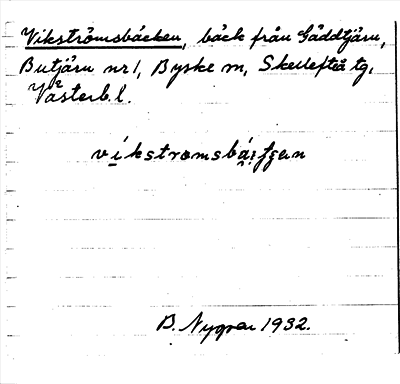 Vikströmsbäcken, bäck från Gäddtjärn,
Butjärn nr 1, Byske sn, Skellefteå tg,
Västerb. l.
B. Nygren 1932.